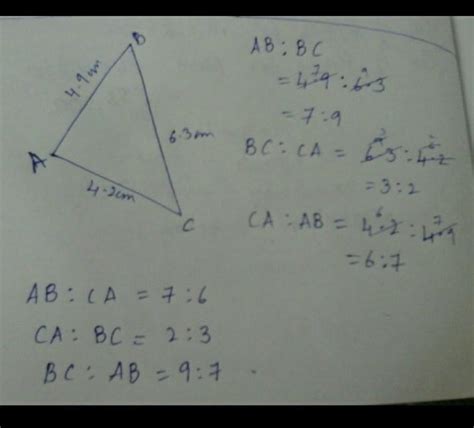 B
4.9cm
6.3cm
A
4.2cm
C
AB : BC
= 4.9 : 6.3
= 7 : 9
BC : CA = 6.3 : 4.2
= 3 : 2
CA : AB = 4.2 : 4.9
= 6 : 7
AB : CA = 7 : 6
CA : BC = 2 : 3
BC : AB = 9 : 7